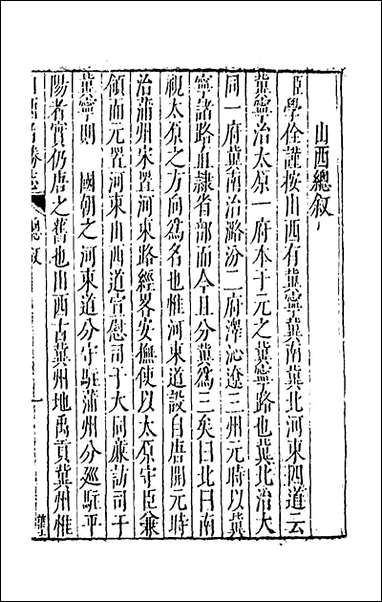 山西總叙
臣學佺謹按山西有冀寧冀南冀北河東四道云
冀寧治太原一府本于元之冀寧路也冀北治大
同一府冀南治潞汾二府澤沁遼三州元時以冀
寧諸路直隸省部而今且分冀爲三矣曰北曰南
視太原之方向爲名也惟河東道設自唐開元時
治蒲州宋置河東路經畧安撫使以太原守臣兼
領而元置河東山西道宣慰司于大同廉訪司于
冀寧則 國朝之河東道分守駐蒲州分巡駐平
陽者實仍唐之舊也山西古冀州地禹貢冀州惟
山西名勝志 總叙 一